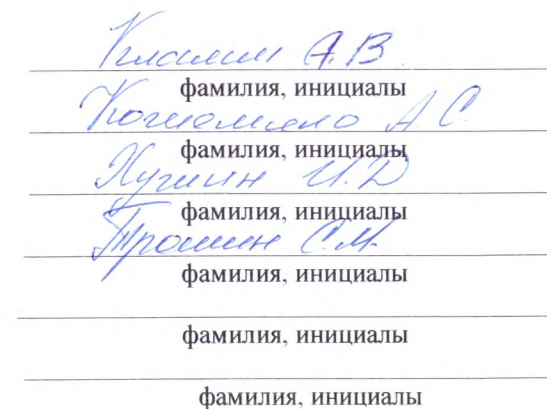 А.В.
фамилия, инициалы
А С.
фамилия, инициалы
И.Д
фамилия, инициалы
Трошин С.М.
фамилия, инициалы
фамилия, инициалы
фамилия, инициалы